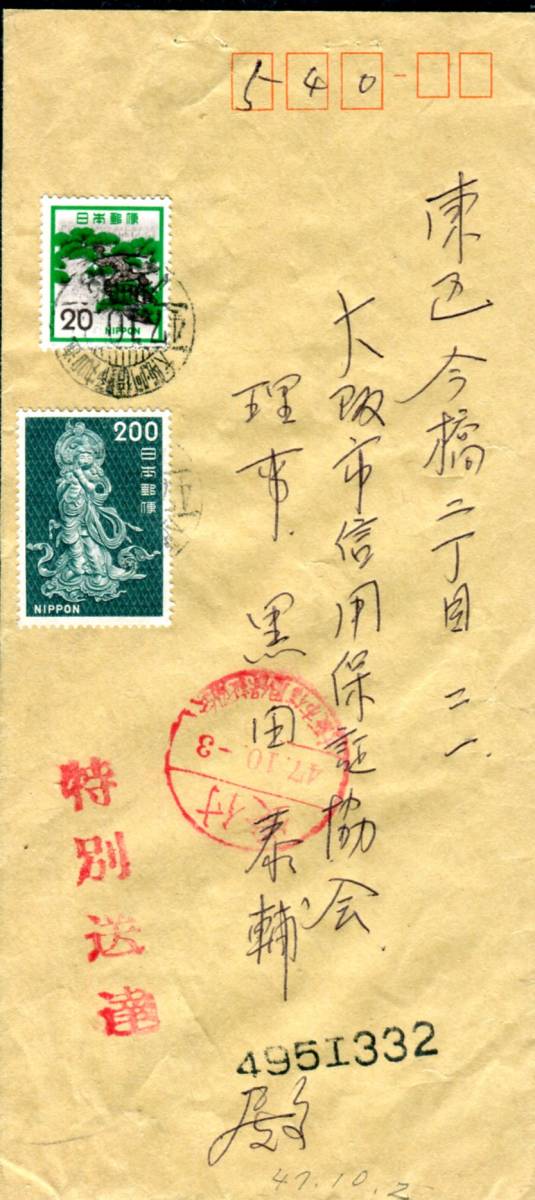 540
東区今橋二丁目二一
大阪市信用保証協会
理事 黒田泰輔
殿
日本郵便
20
NIPPON
200
日本郵便
NIPPON
47.10.-3
受付
特別送達
4951332
47.10.2